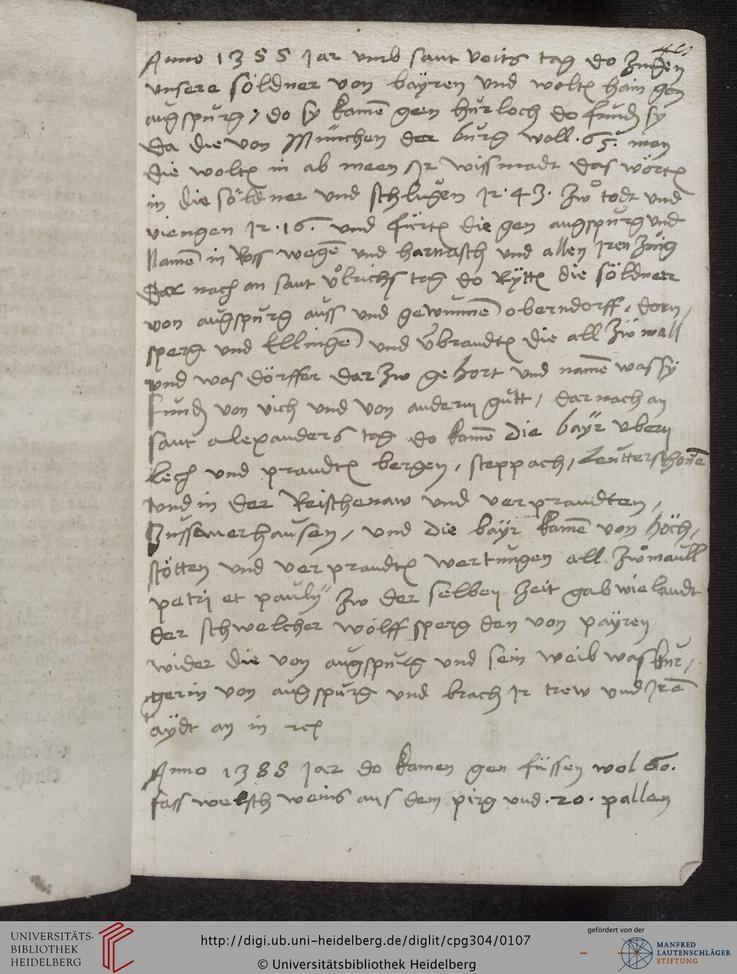 Anno 1388 Jar vmb sant veits tag do zugen
vnsere söldner von bayren vnd woltñ hain gen
augspurg, do sy kamē gen hurloch do fundñ sy
da die von München der burg woll .65. man
die woltñ in ab meen Jr wissmadt das wörtñ
in die söldner vnd schlugen Jr .43. zů todt vnd
viengen Jr .16. vnd fürtñ die gen augspurg vnd
Namē in Ross wegē vnd harnasch vnd allen Jren zůg
Dar nach an sant vͦlrichs tag do Ryttñ die söldner
von augspurg auss vnd gewunnē oberndorff, dorn,
sperg vnd Ellingē vnd vͦbrandtñ die all zwmall
vnd was dörffer dar zw gehort vnd namē was sy
fundñ von vich vnd von anderm gutt, dar nach an
sant alexanders tag do kamē die bayr vbern
lech vnd prandtñ bergen, steppach, Leutterschouē
vnd in der Reischenaw vnd verprandten,
Zussmerhausen, vnd die bayr kamē von höch,
stötten vnd verprandtñ wertungen all zwmaull
petri et pauly zw der selben Zeit gab wielandt
der schwelcher wolffsperg den von payren
wider die von augspurg vnd sein weib was bur,
gerin von augspurg vnd brach Jr trew vnd Jrē
aydt an in
Anno 1388 Jar do kamen gen füssen wol 60.
fass welsch weins aus dem pirg vnd .20. pallen
UNIVERSITÄTS-
BIBLIOTHEK
HEIDELBERG
http://digi.ub.uni-heidelberg.de/diglit/cpg304/0107
© Universitätsbibliothek Heidelberg
gefördert von der
MANFRED
LAUTENSCHLÄGER
STIFTUNG